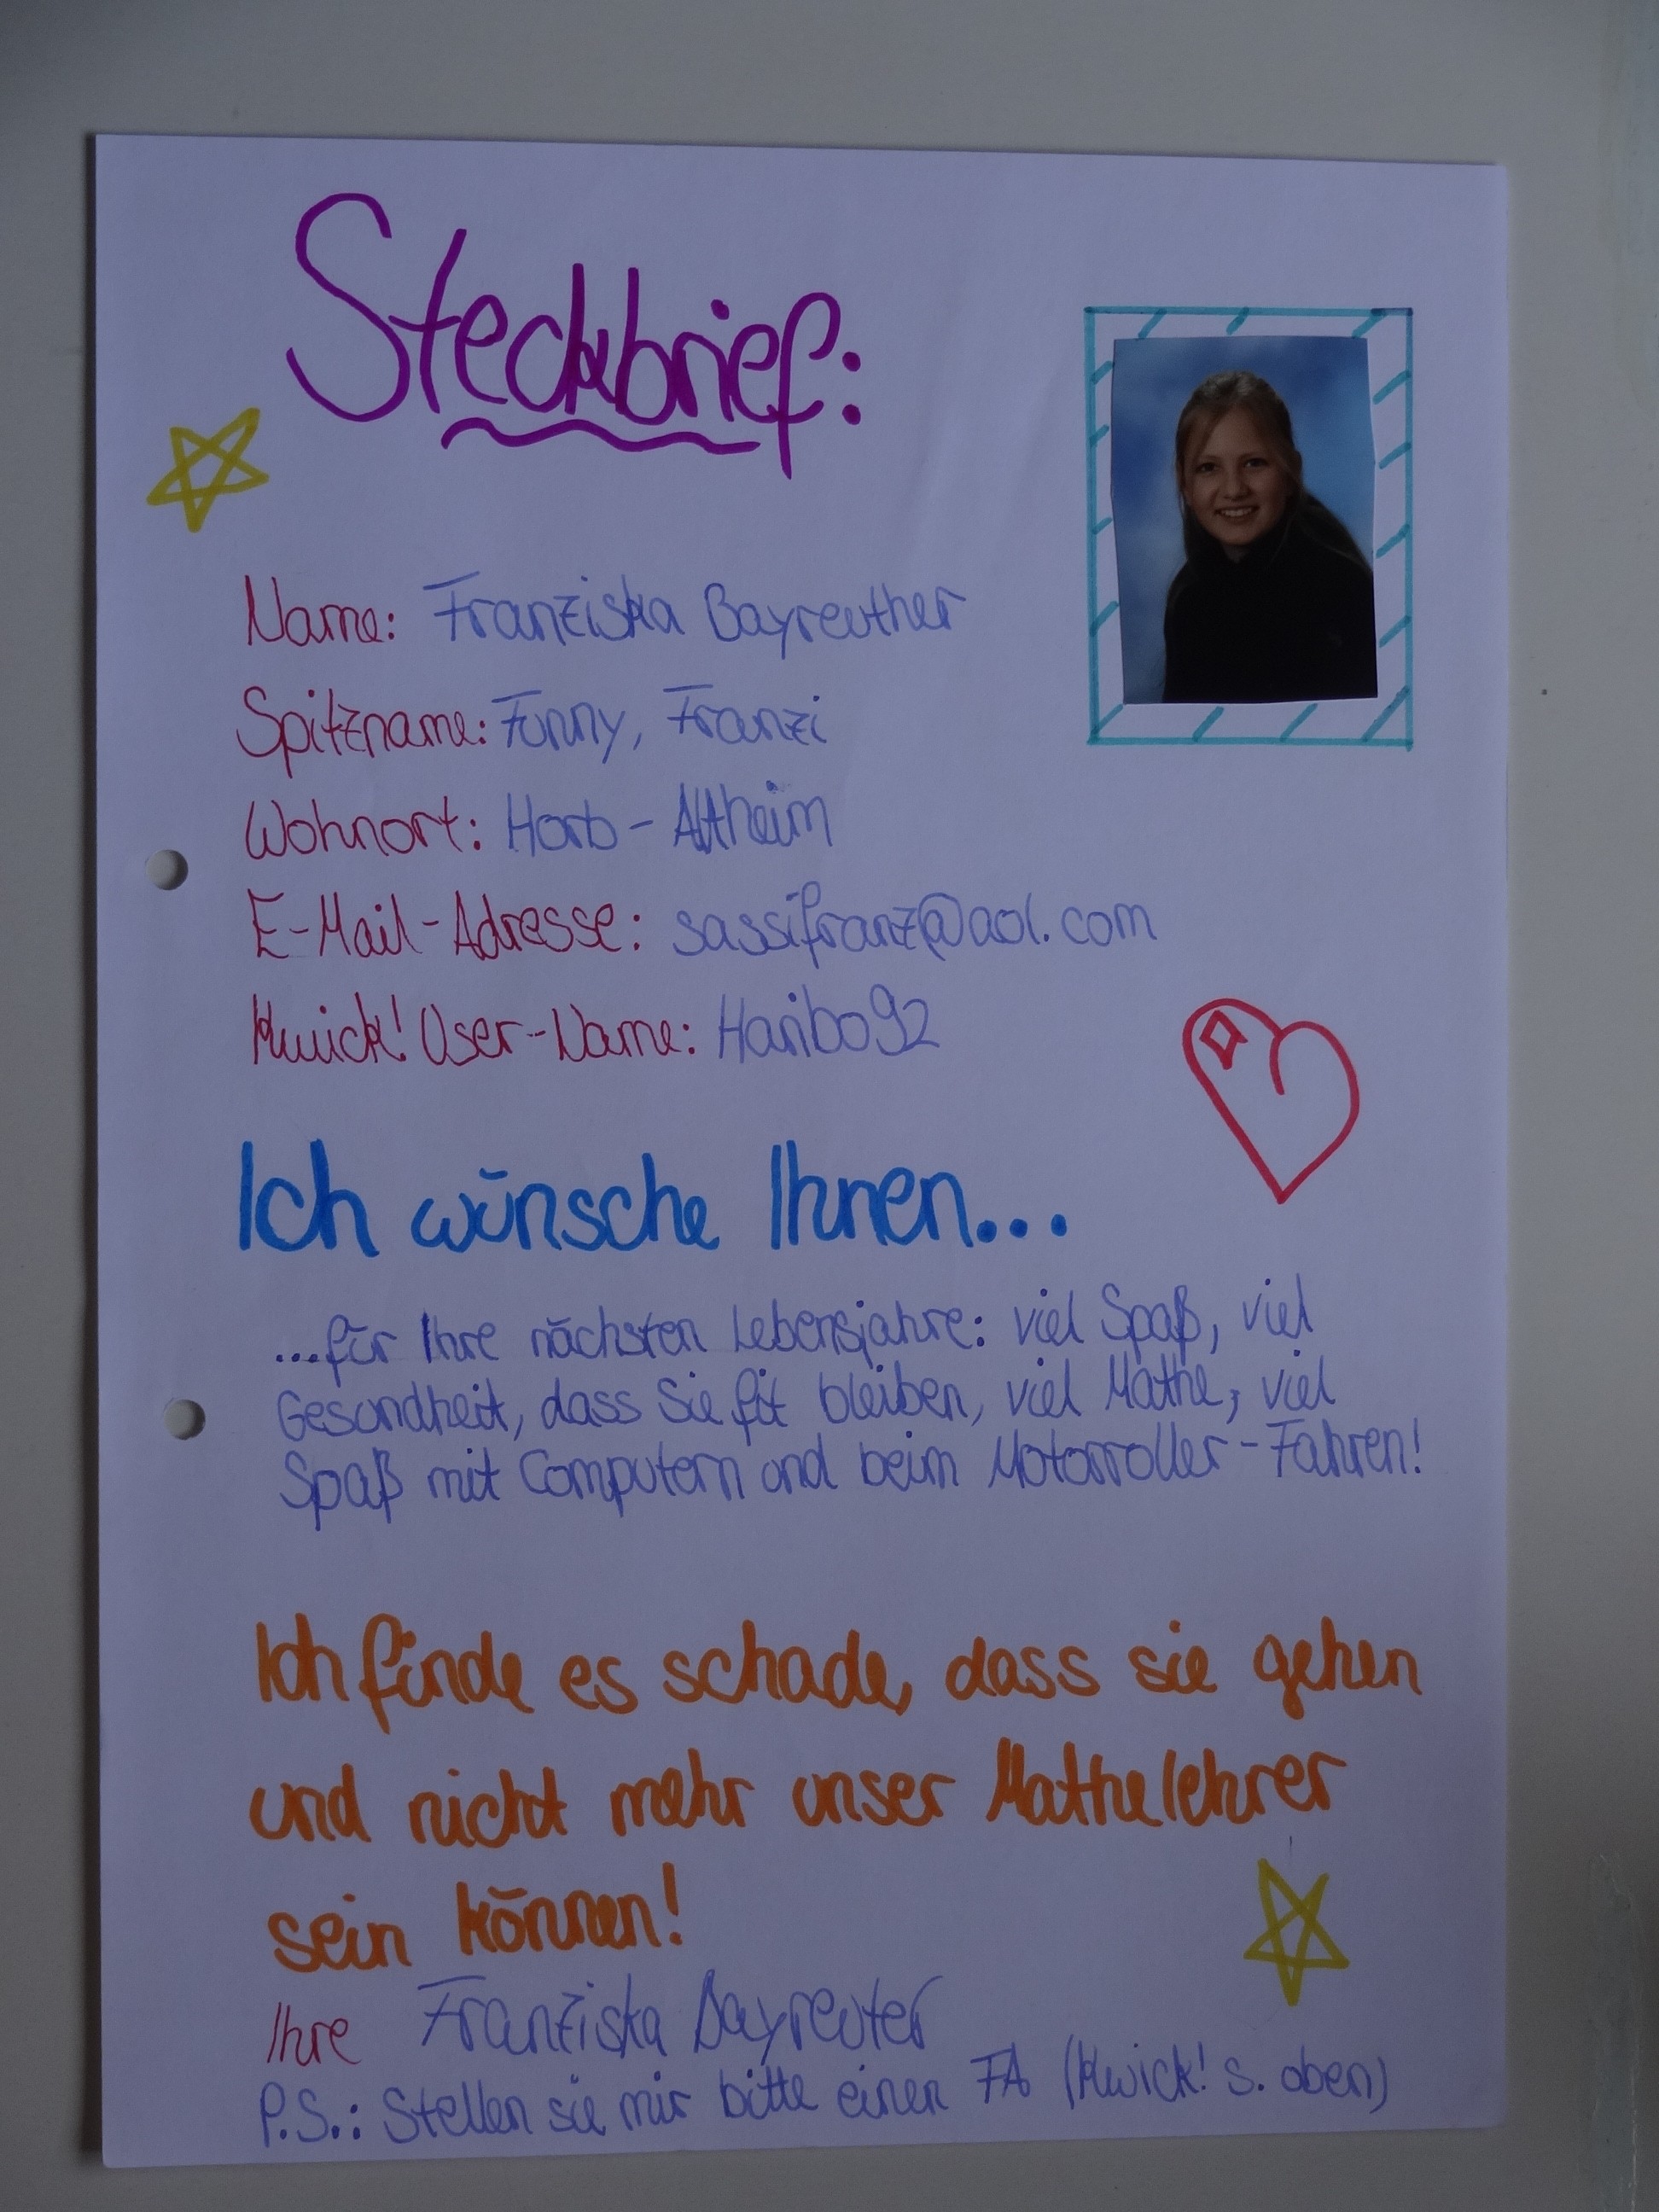 Steckbrief:
Name: Franziska Bayreuther
Spitzname: Funny, Franzi
Wohnort: Horb - Altheim
E-Mail-Adresse: sassifranz@aol.com
Kwick! User-Name: Haribo92
Ich wünsche Ihnen...
...für Ihre nächsten Lebensjahre: viel Spaß, viel
Gesundheit, dass Sie fit bleiben, viel Mathe, viel
Spaß mit Computern und beim Motorroller-Fahren!
Ich finde es schade, dass sie gehen
und nicht mehr unser Mathelehrer
sein können!
Ihre Franziska Bayreuter
P.S.: Stellen sie mir bitte einen FA (Kwick! s. oben)